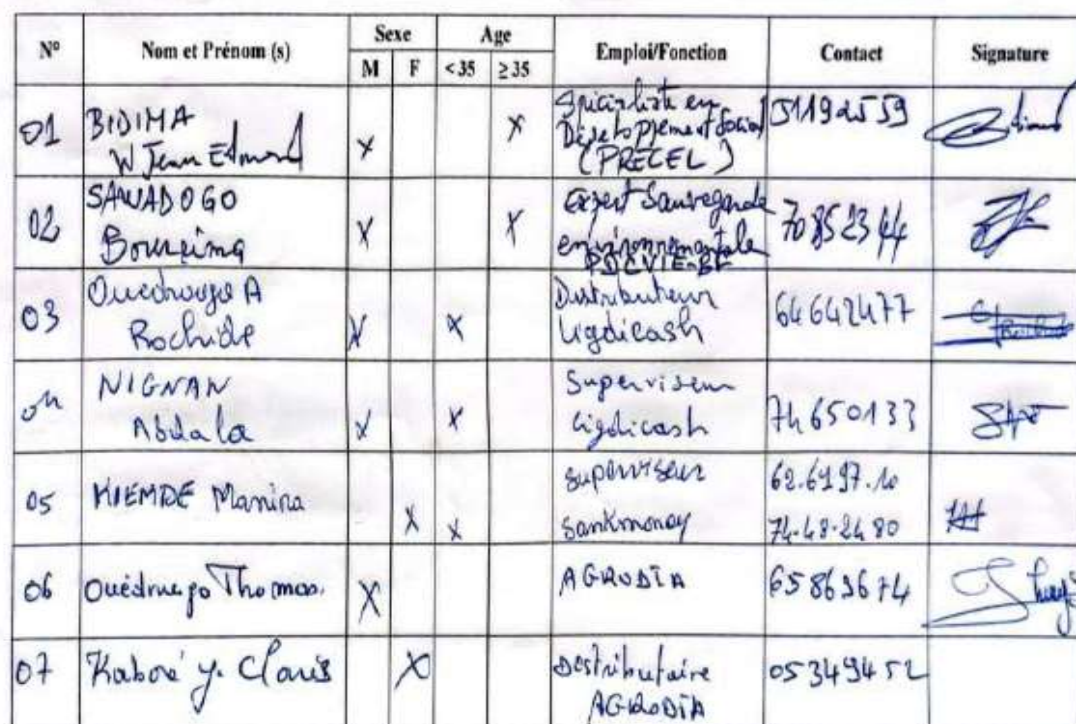 N° Nom et Prénom (s) Sexe Age Emploi/Fonction Contact Signature
M F <35 ≥35
01 BIDIMA W Jean Edmond X X Spécialiste en Développement Social (PRECEL) 51192559
02 SAWADOGO Boureima X X Expert Sauvegarde environnementale PDCVIE-BF 70852344
03 Ouedraogo A Rochide X X Distributeur Ligdicash 64642477
04 NIGNAN Abdala X X Superviseur Ligdicash 74650133
05 KIEMDE Manira X X Superviseur Sankmoney
06 Ouédraogo Thomas X AGRODIA 65863674
07 Kaboré y. Claris X Distributaire AGRODIA 05349452